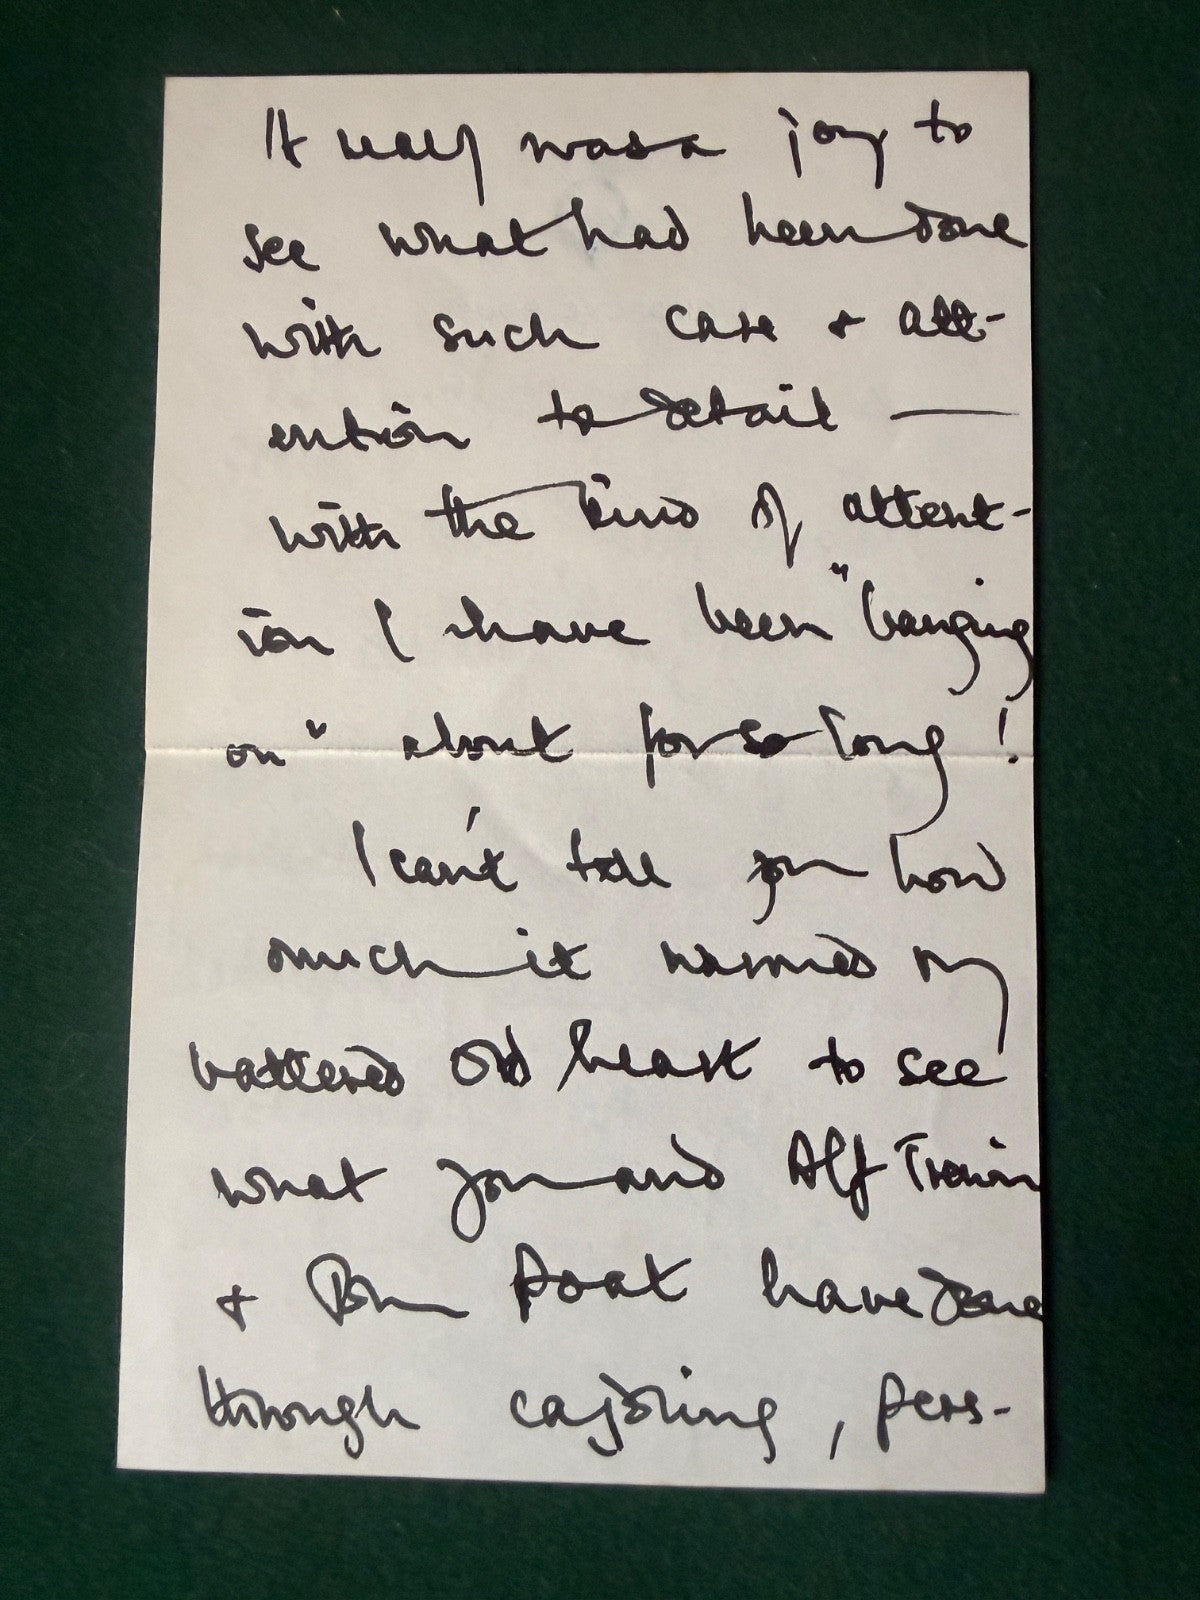 It really was a joy to
see what had been done
with such care & att-
ention to detail —
with the kind of attent-
ion I have been "banging
on" about for so long!
I can't tell you how
much it warmed my
battered old heart to see
what you and Alf
& Poat have done
through cajoling, pers-